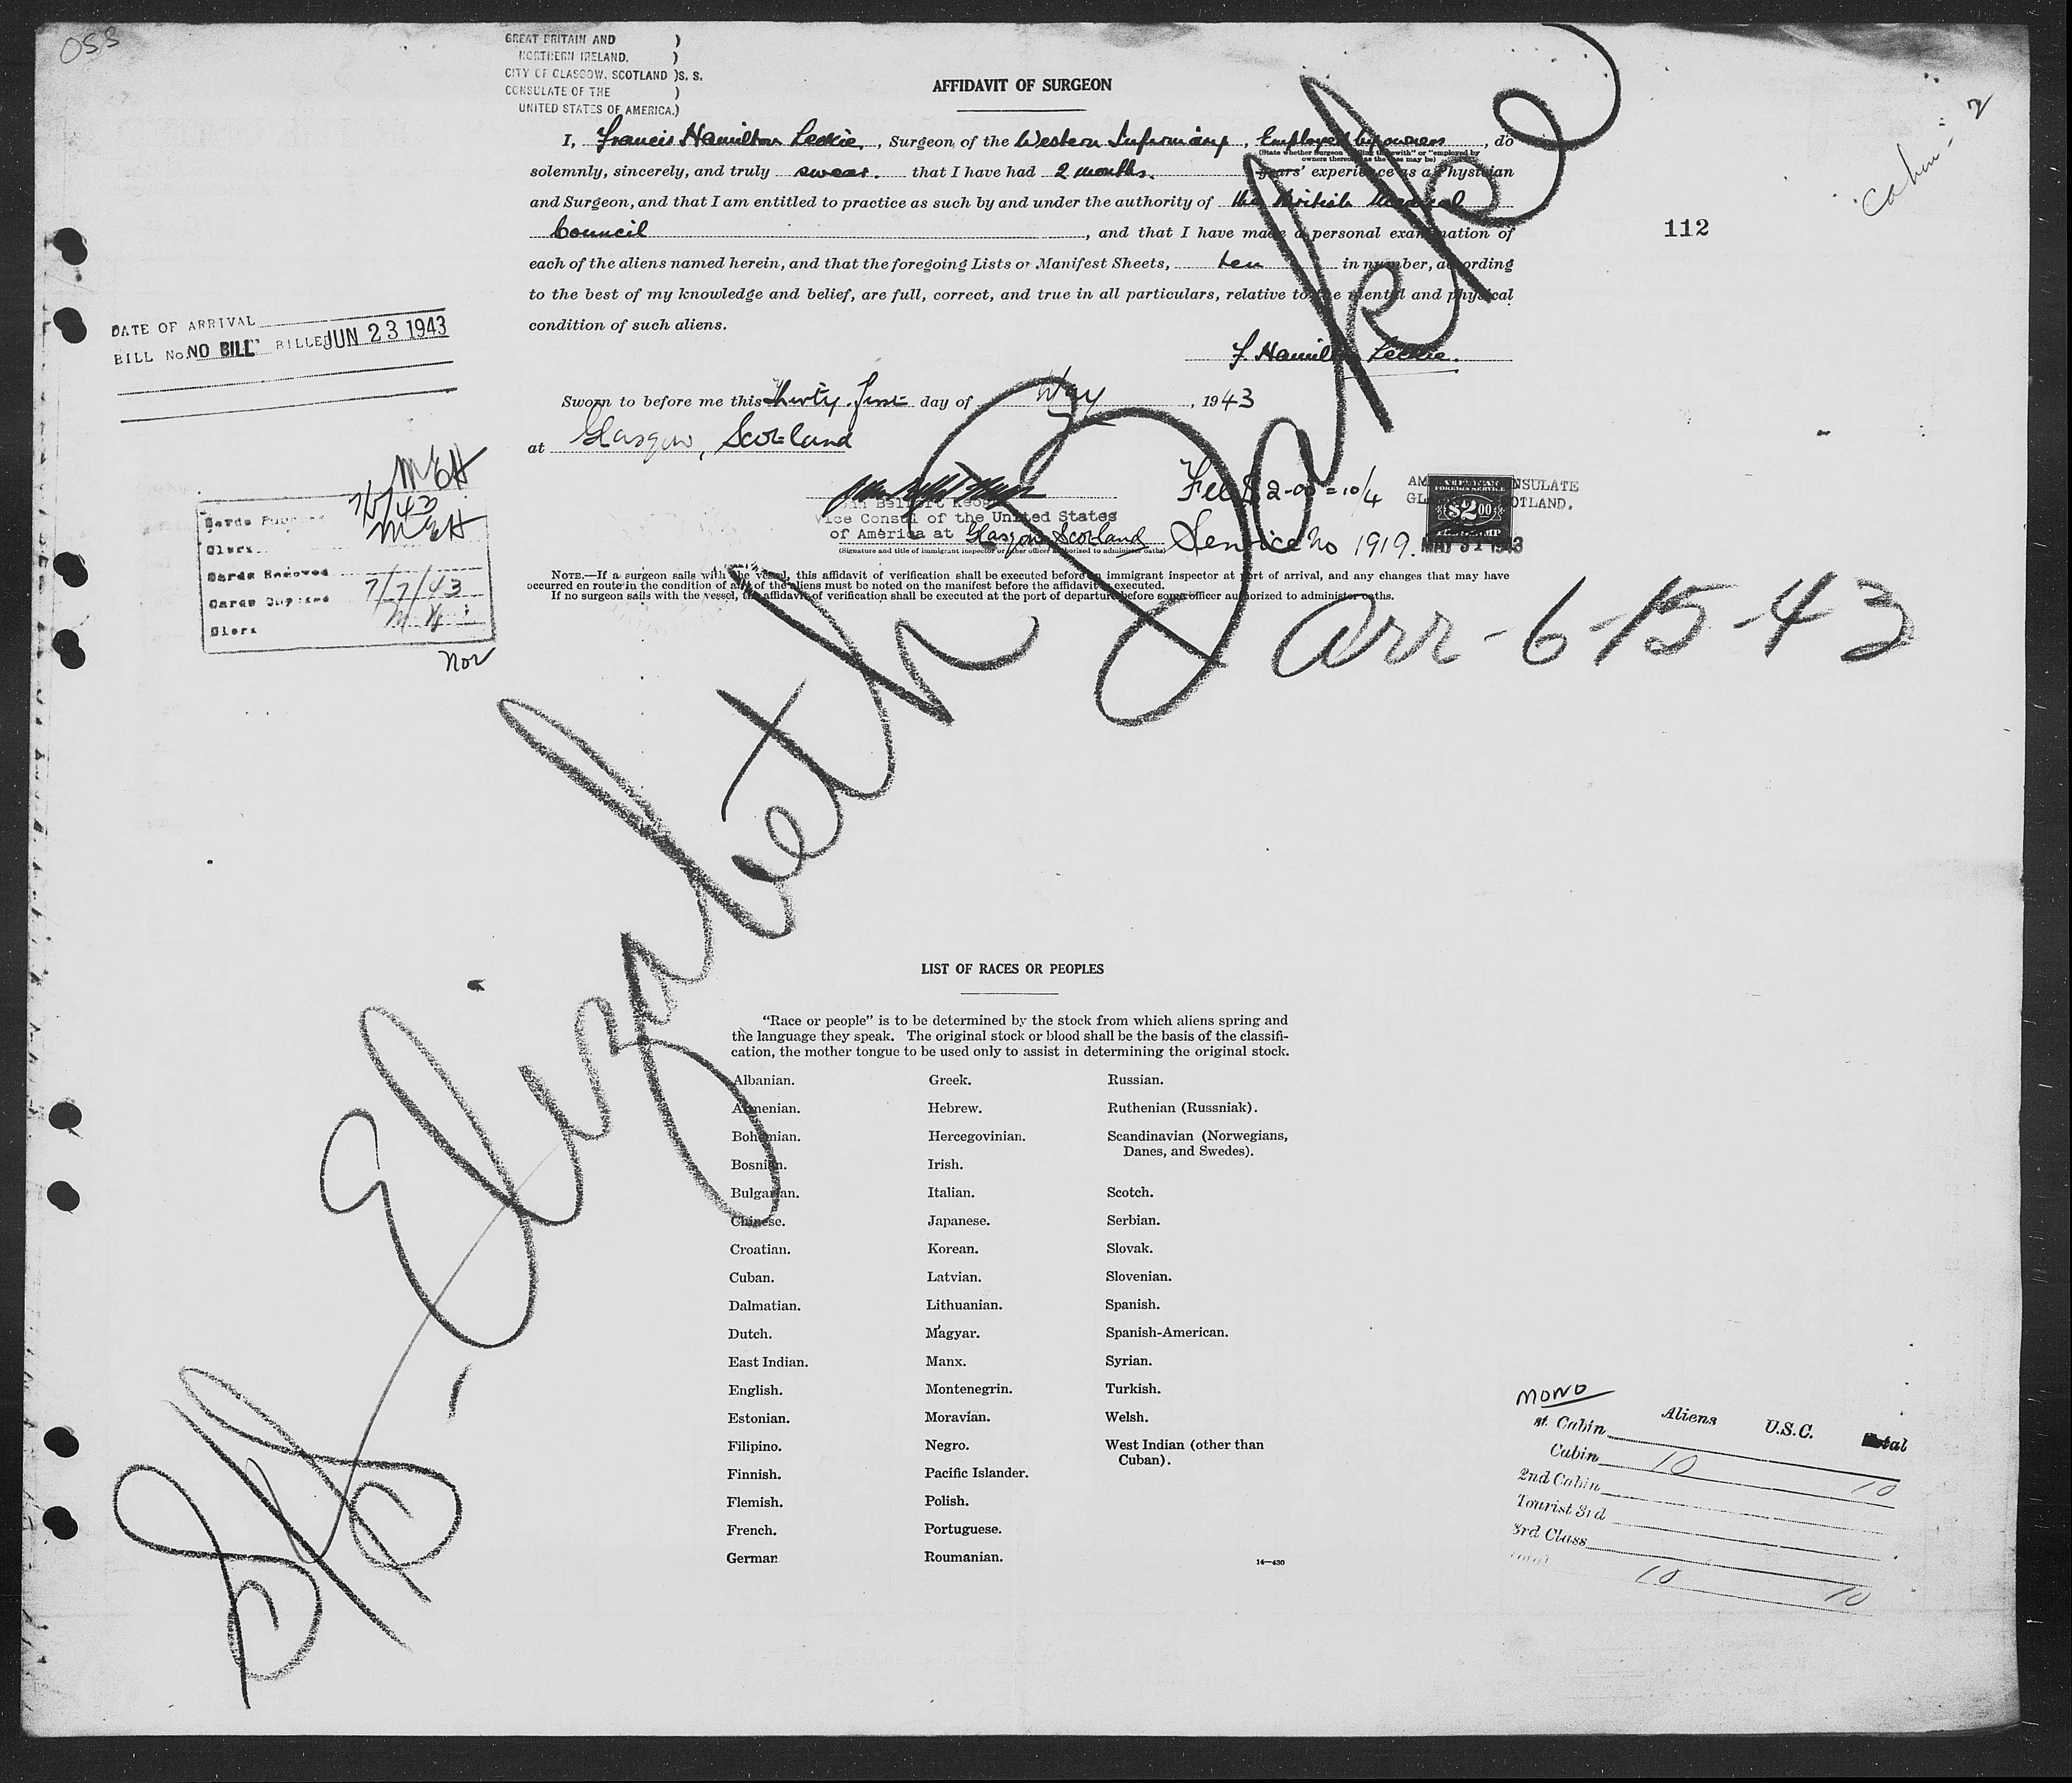 OSS
GREAT BRITAIN AND )
NORTHERN IRELAND. )
CITY OF GLASGOW, SCOTLAND )S. S.
CONSULATE OF THE )
UNITED STATES OF AMERICA.)
AFFIDAVIT OF SURGEON
I, Francis Hamilton Leckie, Surgeon of the Western Infirmary, Employed by owners, do
(State whether surgeon sailing therewith" or "employed by
owners thereof," as the case may be)
solemnly, sincerely, and truly swear. that I have had 2 months. years' experience as a Physician
and Surgeon, and that I am entitled to practice as such by and under the authority of the British Medical
Council, and that I have made a personal examination of
each of the aliens named herein, and that the foregoing Lists or Manifest Sheets, ten in number, according
to the best of my knowledge and belief, are full, correct, and true in all particulars, relative to the mental and physical
condition of such aliens.
F. Hamilton Leckie.
Sworn to before me this Thirty-first day of May, 1943
at Glasgow, Scotland
Vice Consul of the United States
of America at Glasgow Scotland
(Signature and title of immigrant inspector or other officer authorized to administer oaths)
Fee $2-00 = 10/4
Service No 1919.
AMERICAN CONSULATE
GLASGOW, SCOTLAND.
AMERICAN
FOREIGN SERVICE
$2.00
FEE STAMP
MAY 31 1943
NOTE.—If a surgeon sails with the vessel, this affidavit of verification shall be executed before an immigrant inspector at port of arrival, and any changes that may have
occurred en route in the condition of any of the aliens must be noted on the manifest before the affidavit is executed.
If no surgeon sails with the vessel, the affidavit of verification shall be executed at the port of departure before some officer authorized to administer oaths.
112
Cabin - 2
DATE OF ARRIVAL
BILL No. NO BILL" BILLED JUN 23 1943
MEH
Cards Punched 7/7/43
Clerk MEH
Cards Removed
Cards Supplied 7/7/43
Clerk
Nov
arr - 6-15-43
S/S - Elizabeth Bakke
LIST OF RACES OR PEOPLES
"Race or people" is to be determined by the stock from which aliens spring and
the language they speak. The original stock or blood shall be the basis of the classifi-
cation, the mother tongue to be used only to assist in determining the original stock.
Albanian. Greek. Russian.
Armenian. Hebrew. Ruthenian (Russniak).
Bohemian. Hercegovinian. Scandinavian (Norwegians,
Danes, and Swedes).
Bosnian. Irish.
Bulgarian. Italian. Scotch.
Chinese. Japanese. Serbian.
Croatian. Korean. Slovak.
Cuban. Latvian. Slovenian.
Dalmatian. Lithuanian. Spanish.
Dutch. Magyar. Spanish-American.
East Indian. Manx. Syrian.
English. Montenegrin. Turkish.
Estonian. Moravian. Welsh.
Filipino. Negro. West Indian (other than
Cuban).
Finnish. Pacific Islander.
Flemish. Polish.
French. Portuguese.
German Roumanian.
14—430
MONO
Aliens U.S.C. Total
st. Cabin
Cabin 10 10
2nd Cabin
Tourist 3rd
3rd Class
Total 10 10